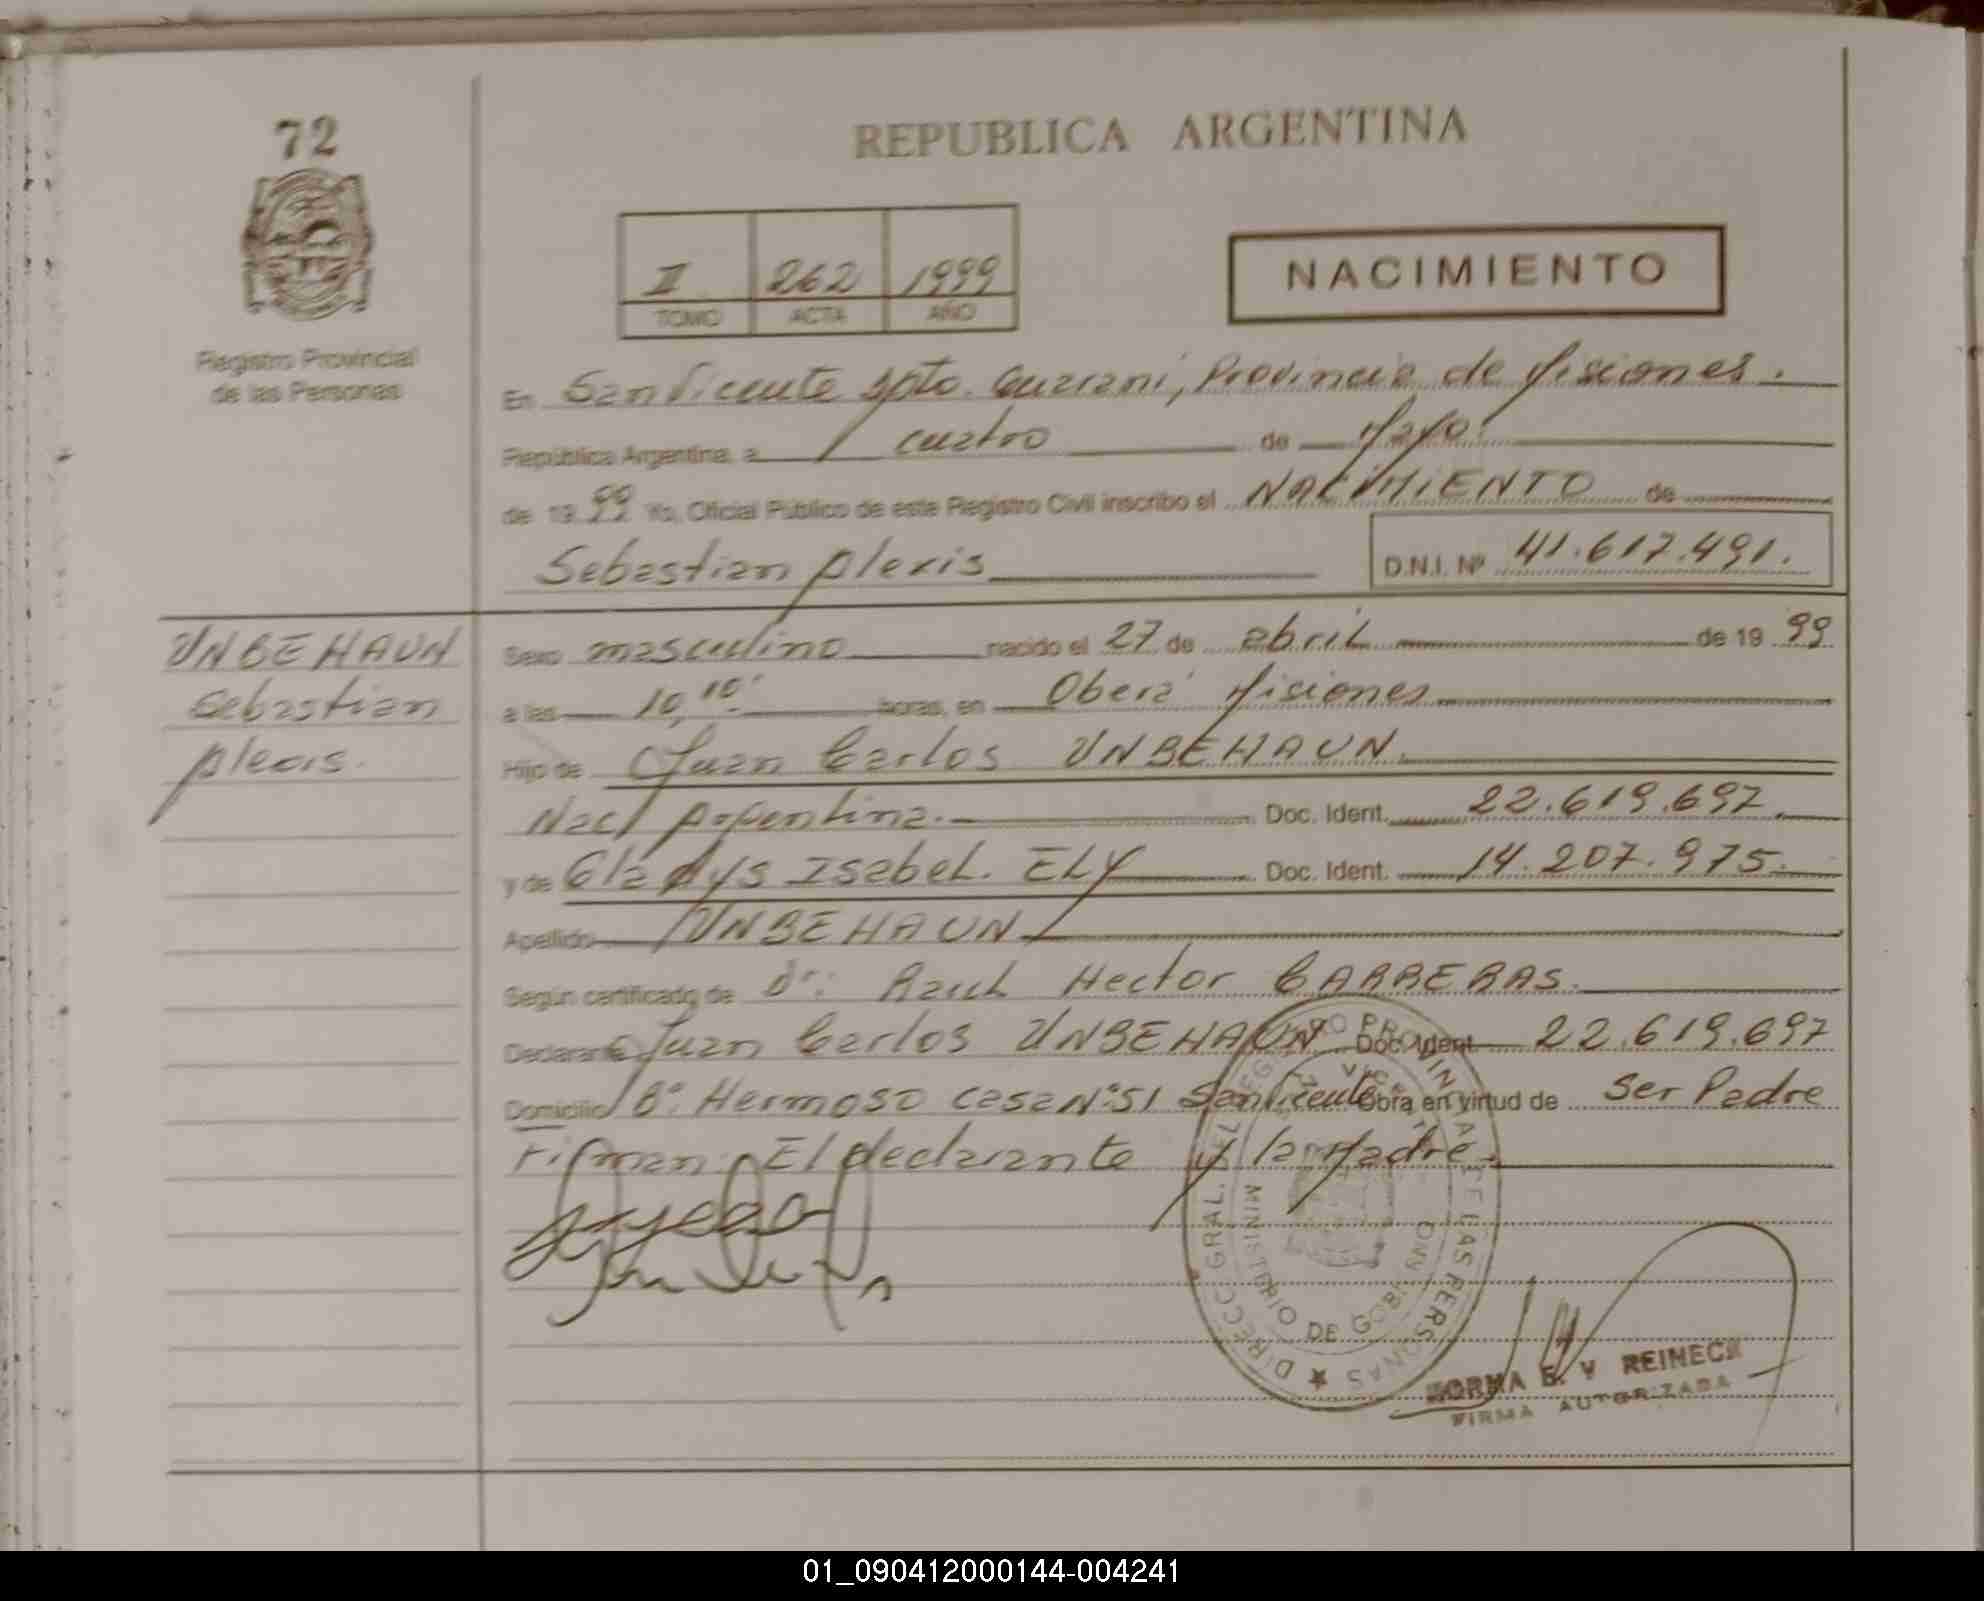 72
REPUBLICA ARGENTINA
II 262 1999
TOMO ACTA AÑO
NACIMIENTO
Registro Provincial
de las Personas
En San Vicente Dpto. Guarani, Provincia de Misiones.
República Argentina, a cuatro de Mayo
de 1999 Yo, Oficial Público de este Registro Civil inscribo el NACIMIENTO de
Sebastian Alexis D.N.I. Nº 41.617.491.
UNBEHAUN
Sebastian
Alexis.
Sexo masculino nacido el 27 de abril de 1999
a las 10,10 horas, en Oberá Misiones
Hijo de Juan Carlos UNBEHAUN.
Nac. Argentina. Doc. Ident. 22.619.697.
y de Gladys Isabel. ELY Doc. Ident. 14.207.975.
Apellido UNBEHAUN
Según certificado de Dr: Raul Hector CARRERAS.
Declarante Juan Carlos UNBEHAUN Doc. Ident. 22.619.697
Domicilio Bº. Hermoso casa Nº 51 San Vicente Obra en virtud de Ser Padre
Firman: El declarante y la Madre.
DIRECC. GRAL. DEL REGISTRO PROVINCIAL DE LAS PERSONAS
MINISTERIO DE GOBIERNO
NORMA B. V REINECK
FIRMA AUTORIZADA
01_090412000144-004241